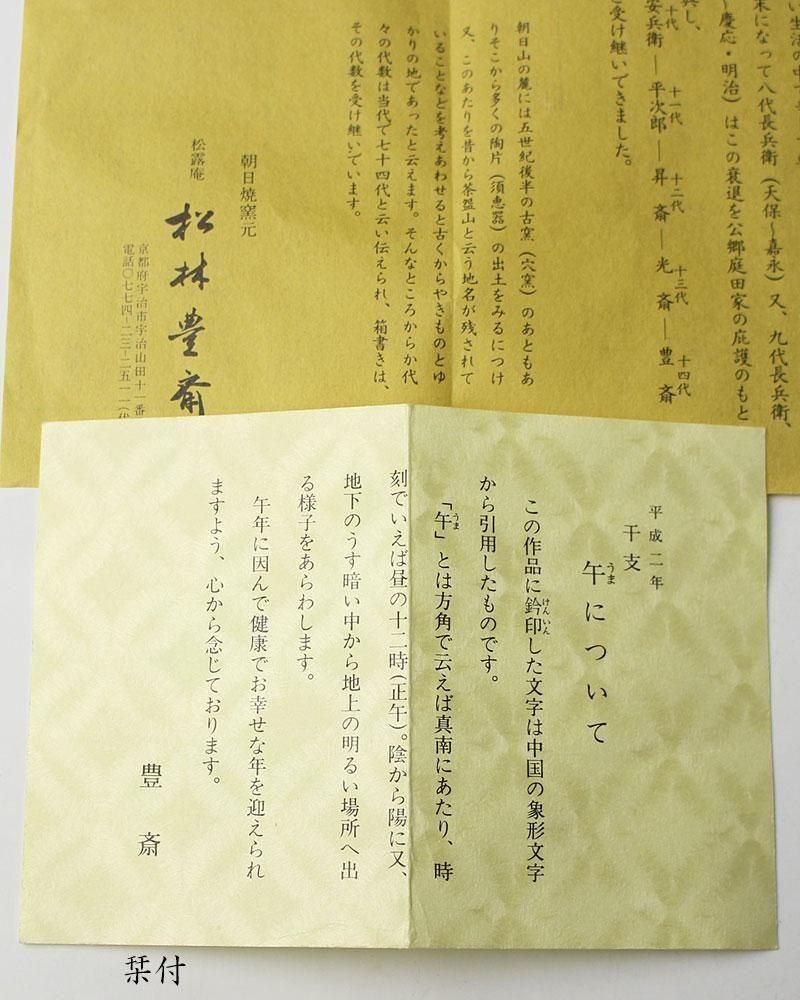 い生活の中で
末になって八代長兵衛（天保～嘉永）又、九代長兵衛、
～慶応・明治）はこの衰退を公卿庭田家の庇護のもと
興し、
十代 十一代 十二代 十三代 十四代
安兵衛―平次郎―昇斎―光斎―豊斎
と受け継いできました。
朝日山の麓には五世紀後半の古窯（穴窯）のあともあ
りそこから多くの陶片（須恵器）の出土をみるにつけ
又、このあたりを昔から茶盌山と云う地名が残されて
いることなどを考えあわせると古くからやきものとゆ
かりの地であったと云えます。そんなところからか代
々の代数は当代で七十四代と云い伝えられ、箱書きは、
その代数を受け継いでいます。
朝日焼窯元
松露庵
松林豊斎
京都府宇治市宇治山田十一番
電話〇七七四―二三―二五一一（代
平成二年
干支
午について
うま
この作品に鈐印した文字は中国の象形文字
けんいん
から引用したものです。
「午」とは方角で云えば真南にあたり、時
うま
刻でいえば昼の十二時（正午）。陰から陽に又、
地下のうす暗い中から地上の明るい場所へ出
る様子をあらわします。
午年に因んで健康でお幸せな年を迎えられ
ますよう、心から念じております。
豊斎
栞付